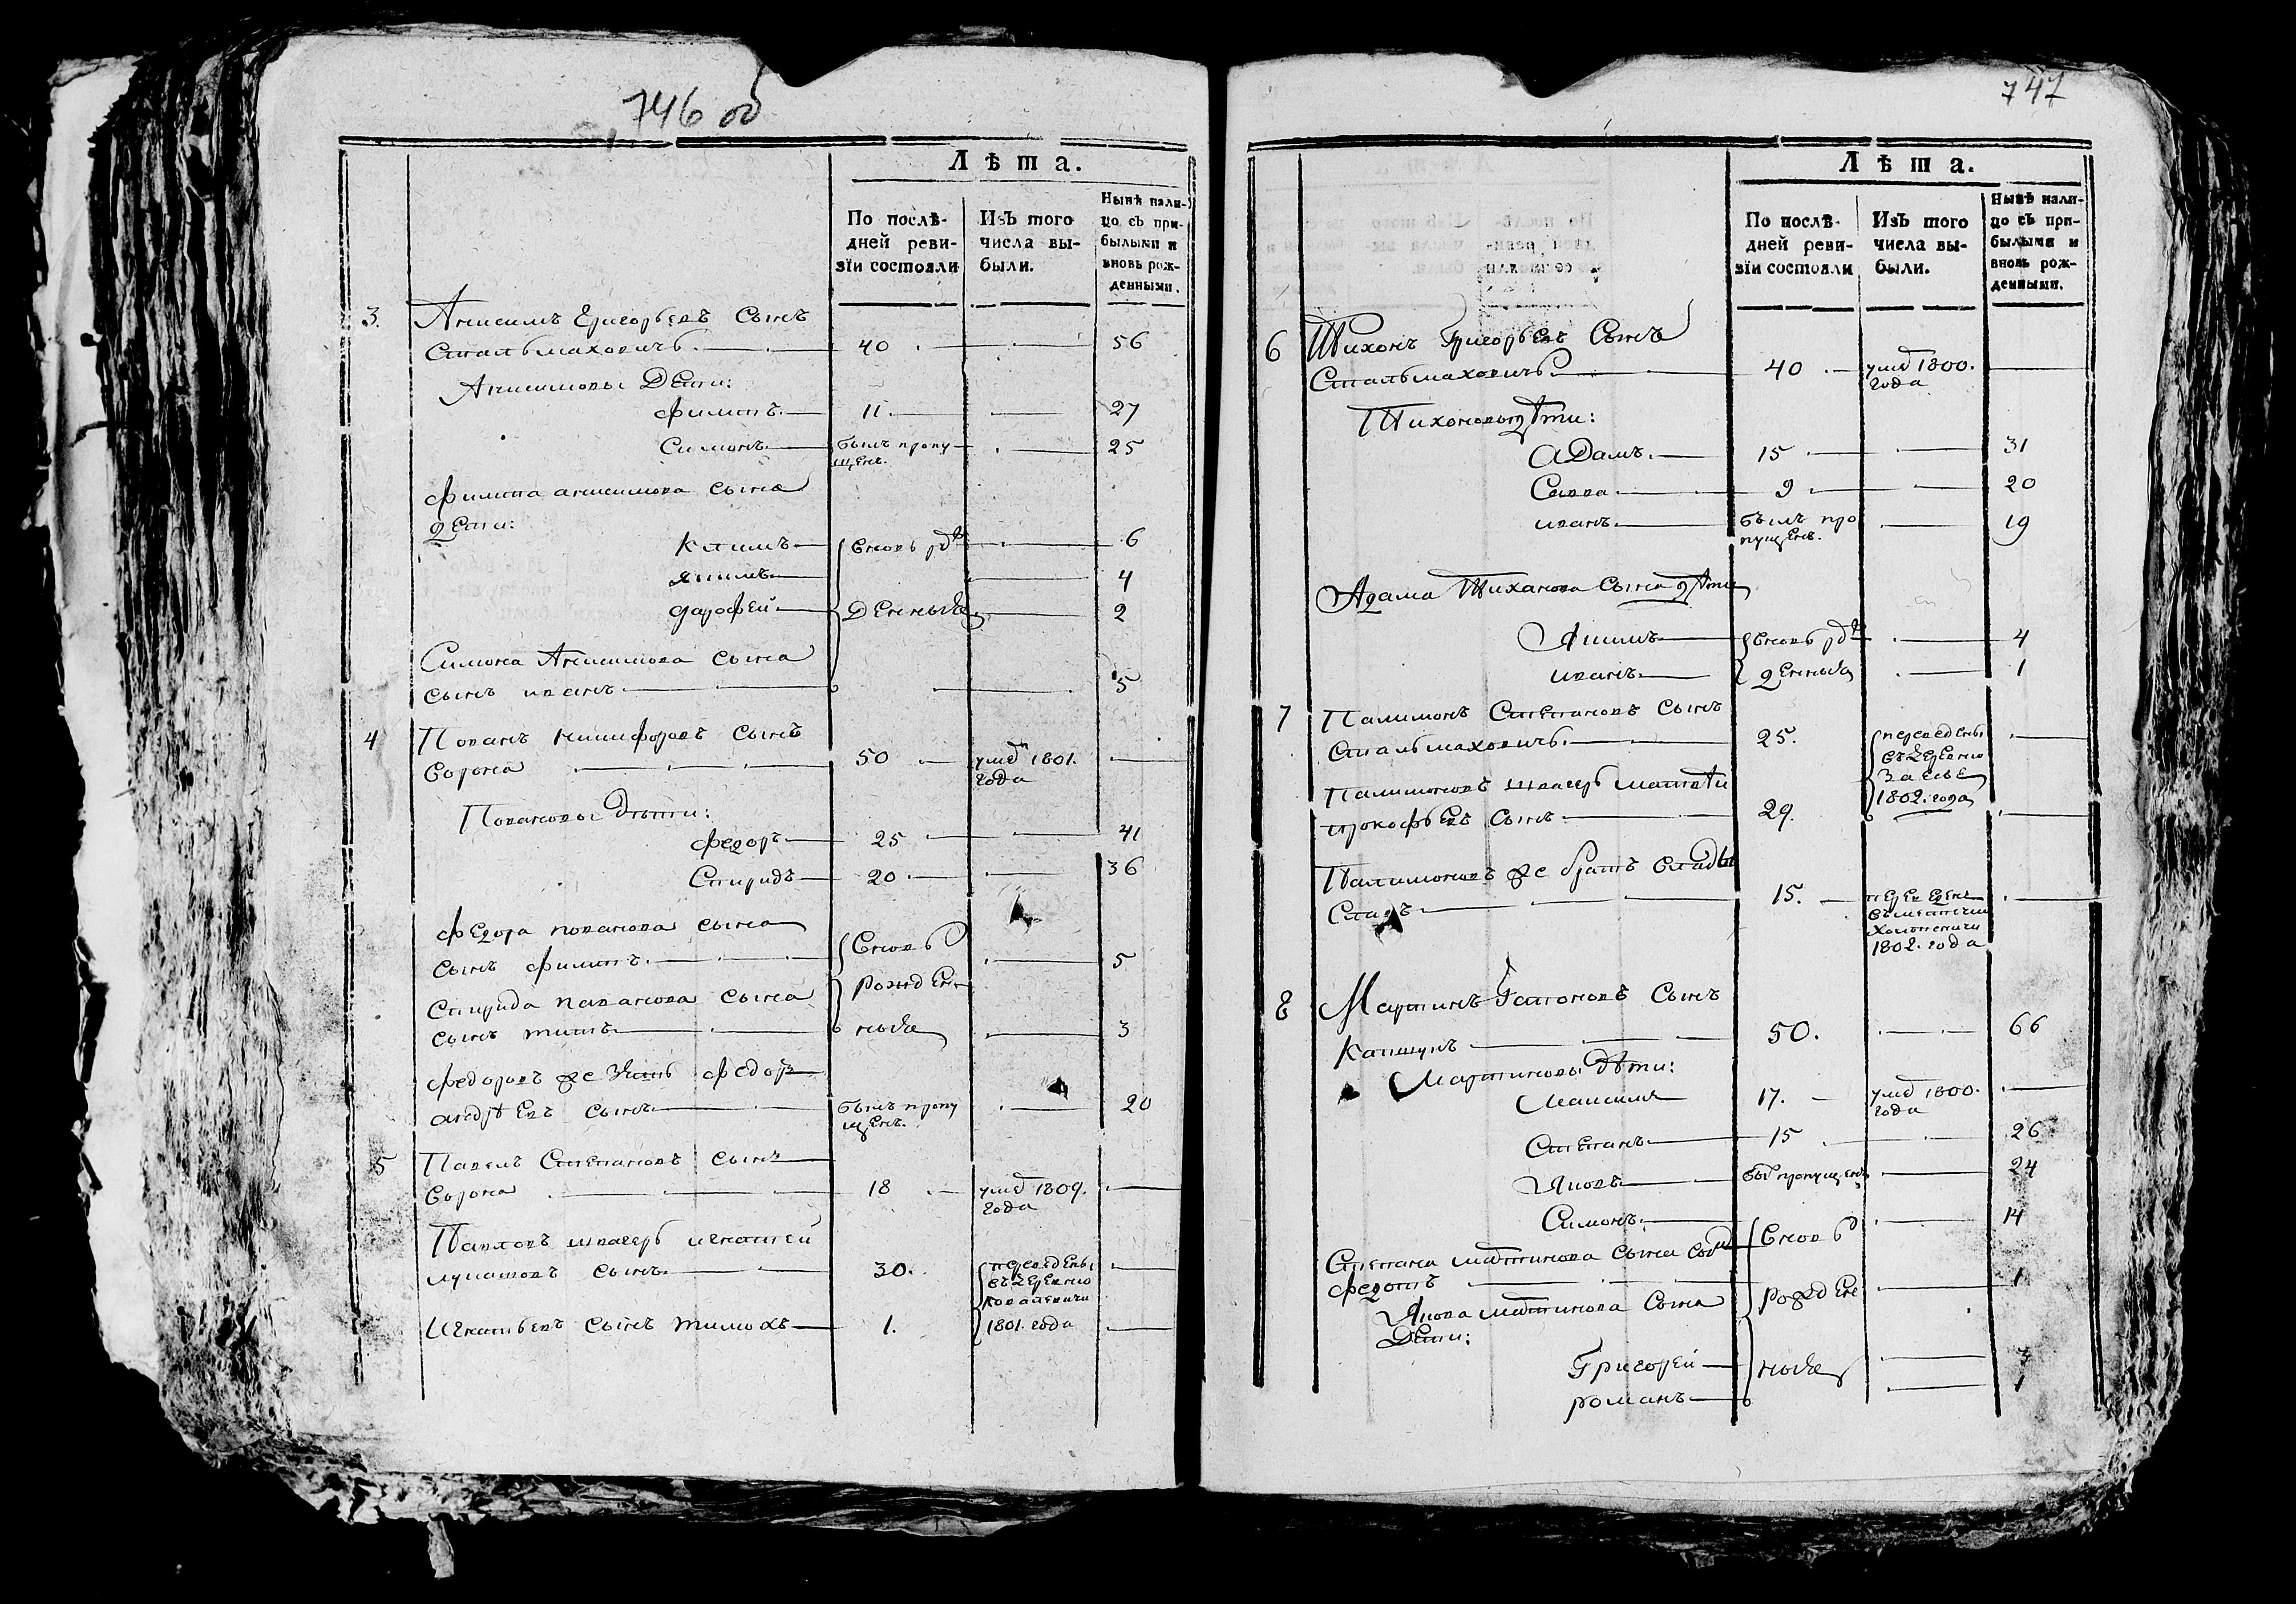 746 об
Лѣта.
По послѣдней ревизіи состояли
Изъ того числа выбыли.
Нынѣ налицо съ прибылыми и вновь рожденными.
3. Анисимъ Григорьевъ Сынъ
Стальмаховичъ. 40 56
Анисимовы Дети:
филипъ. 11. 27
Симонъ. былъ пропущенъ. 25
филипа анисимова сына
дети:
Климъ вновь рож 6
якимъ 4
дарофей денныя 2
Симона Анисимова сына
сынъ иванъ 5
4 Пованъ никифоровъ сынъ
Ворона 50 умѣ 1801.
года
Повановы дѣти:
федоръ 25 41
Спиридъ 20 36
федора пованова сына
сынъ филипъ. вновь 5
Спирида пованова сына рожден
сынъ титъ ныя 3
федоровъ же Зять федоръ
андрѣевъ сынъ былъ пропущенъ. 20
5 Павелъ Степановъ сынъ
Ворона 18 уме 1809.
года
Павловъ швагеръ игнатей
лукашовъ сынъ 30. переведены
въ деревню
ковалевичи
Игнатьевъ сынъ тимохъ 1. 1801. года
747
Лѣта.
По послѣдней ревизіи состояли
Изъ того числа выбыли.
Нынѣ налицо съ прибылыми и вновь рожденными.
6 Тихонъ Григорьевъ Сынъ
Стальмаховичъ 40 уме 1800.
года
Тихоновы дѣти:
Адамъ. 15 31
Савва 9 20
иванъ былъ пропущенъ. 19
Адама Тиханова Сына дѣти
Якимъ вновь рож 4
иванъ денныя 1
7 Палимонъ Степановъ Сынъ
Стальмаховичъ. 25. переведены
въ деревню
1802. года
Палимоновъ швагеръ матвѣй
прокофьевъ сынъ 29.
Палимоновъ же братъ
15. переведенъ
въ местечко
1802. года
8 Мартинъ Гапоновъ Сынъ
50. 66
Мартиновы дѣти:
17. уме 1800.
года
Степанъ 15 26
Яковъ был пропущенъ 24
Симонъ 14
Степана мартинова сына сынъ вновь
федотъ 1
Якова мартинова Сына рожден
Дети:
Григорей ныя 3
романъ 1